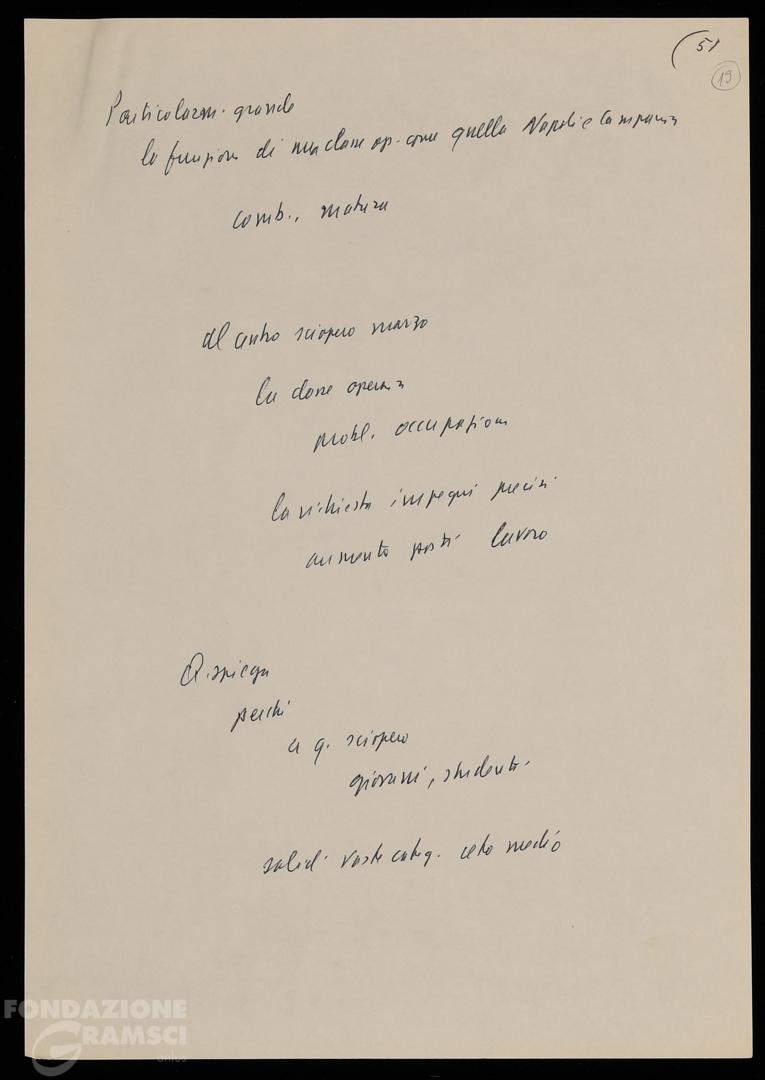 (51
19
Particolarm. grande
la funzione di una classe op. come quella Napoli e Campania
comb., matura
Al centro sciopero marzo
la classe operaia
probl. occupazione
la richiesta impegni precisi
aumento posti lavoro
Q. spiega
perchi
a q. sciopero
giovani, studenti
solid. vaste categ. ceto medio
FONDAZIONE
GRAMSCI
onlus